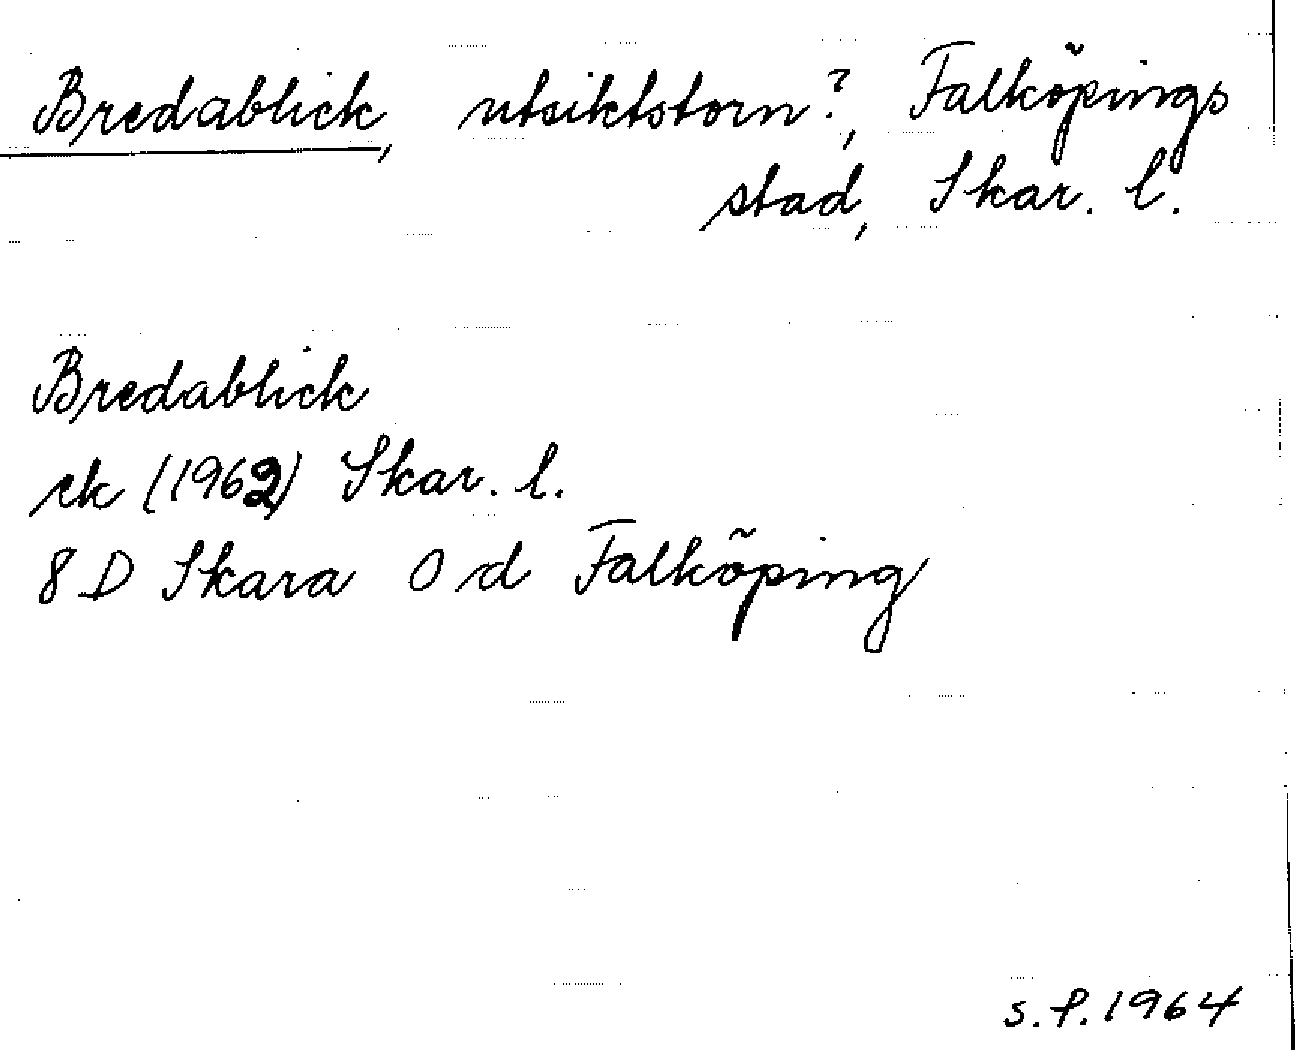 Bredablick, utsiktstorn?, Falköpings
stad, Skar. l.
Bredablick
ek (1962) Skar. l.
8 D Skara 0 d Falköping
s. f. 1964